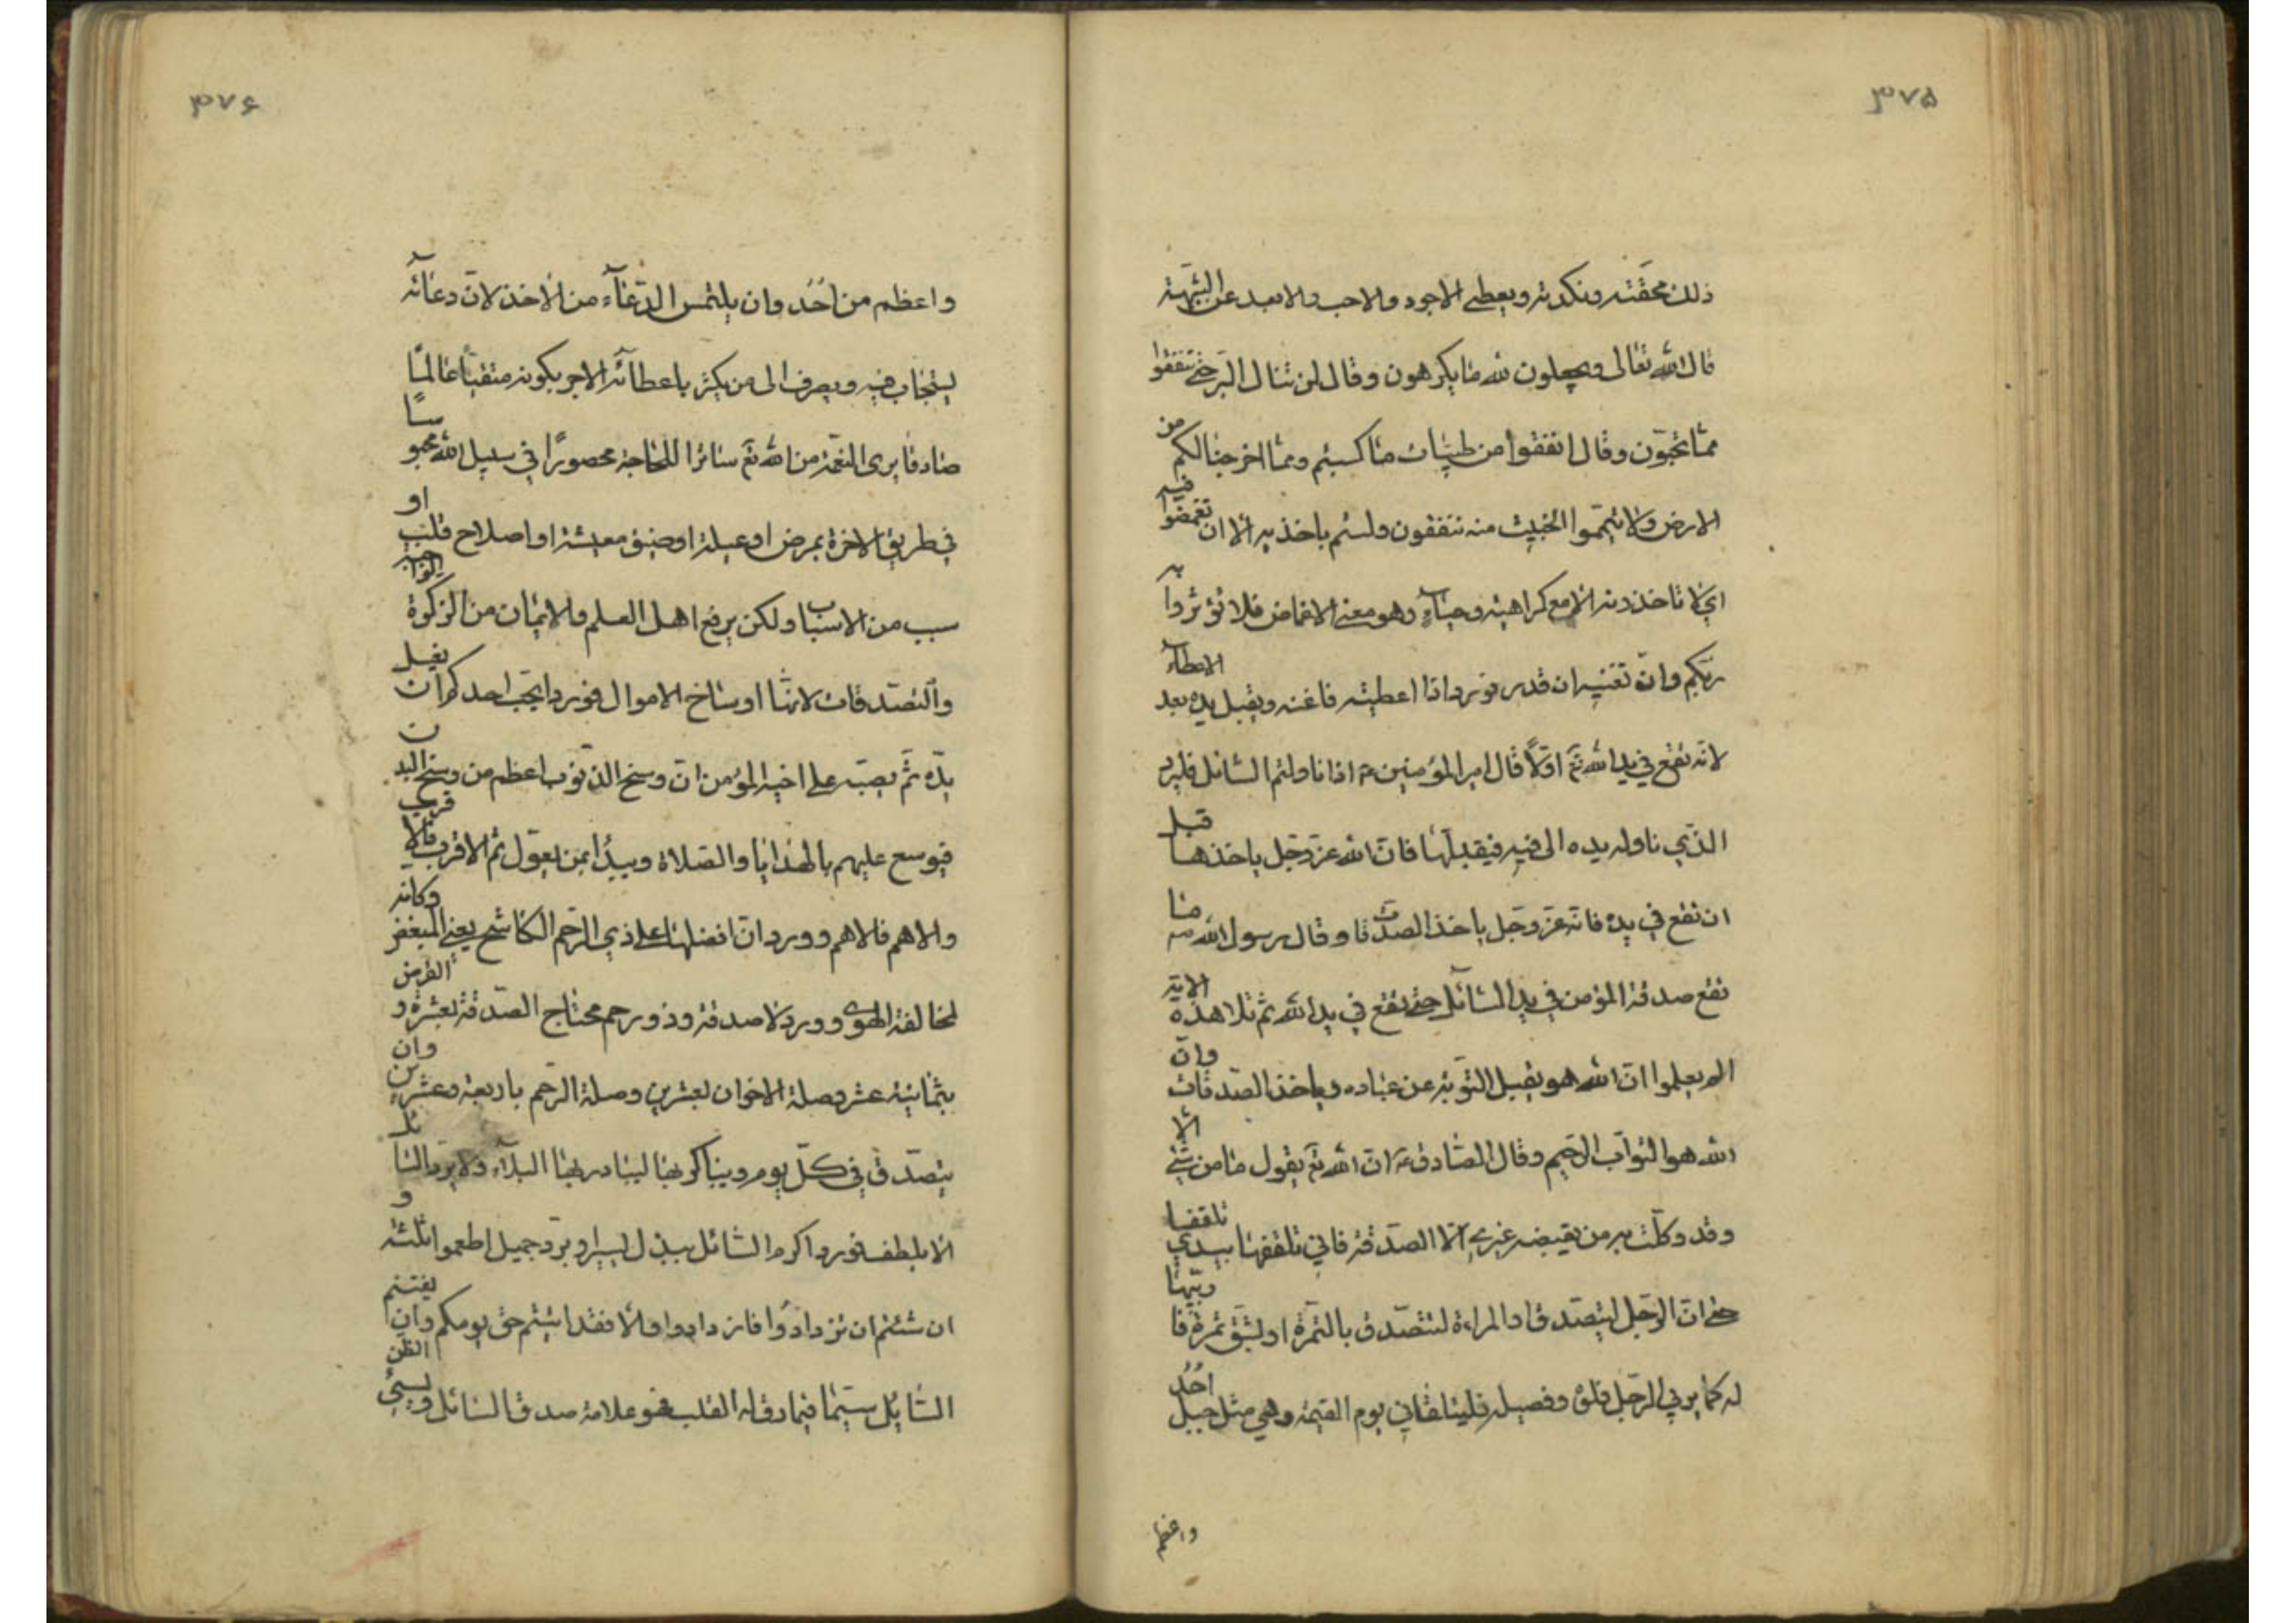 ٣٧۵
ذلك محقته ونكدته ويعطى الاجود والاحب والابعد عن الشبهة
قال الله تعالى ويجعلون لله ما يكرهون وقال لن تنال البر حتى تنفقوا
مما تحبون وقال انفقوا من طيبات ما كسبتم ومما اخرجنا لكم من
الارض ولا تيمموا الخبيث منه تنفقون ولستم باخذيه الا ان تغمضوا فيه
اي لا تاخذونه الا مع كراهية وحياء وهو معنى الاغماض فلا تؤثروا به
ربكم وان تغنيه ان قدر فورد اذا اعطيته فاغنه ويقبل يده بعد الاعطاء
لانه تقع في يد الله تع اولا قال امير المؤمنين ع اذا ناولتم السائل فليرد
الذي ناوله يده الى فيه فيقبلها فان الله عز وجل ياخذها قبل
ان تقع في يده فانه عز وجل ياخذ الصدقات وقال رسول الله ص ما
تقع صدقة المؤمن في يد السائل حتى تقع في يد الله ثم تلا هذه الاية
الم يعلموا ان الله هو يقبل التوبة عن عباده وياخذ الصدقات وان
الله هو التواب الرحيم وقال الصادق ع ان الله تع يقول ما من شئ الا
وقد وكلت به من يقبضه غيري الا الصدقة فاني تلقفها بيدي تلقفا
حتى ان الرجل ليتصدق او المراءة لتتصدق بالتمرة او لشق تمرة فا ربيها
له كما يربي الرجل فلوه وفصيله فليتلقاني يوم القيمة وهي مثل جبل احد
واعظم
٣٧۶
واعظم من احد وان يلتمس الدعاء من الاخذ لان دعائه
يستجاب فيه ويصرف الى من يكثر باعطائه الاجر بكونه متقيا عالما
صادقا يرى النعمة من الله تع ساترا للحاجة محصورا في سبيل الله محبو سا
في طريق الاخرة بمرض او عيلة او ضيق معيشة او اصلاح قلب او
سبب من الاسباب ولكن يرفع اهل العلم والايمان من الزكوة الواجبة
والتصدقات لانها اوساخ الاموال فورد ايحب احدكم ان يغسل
يده ثم يصبه على اخيه المؤمن ان وسخ الذنوب اعظم من وسخ اليد ن
فيوسع عليهم بالهدايا والصلاة ويبدأ بمن يعول ثم الاقرب فالا قرب
والاهم فالاهم وورد ان افضلها على ذي الرحم الكاشح يعني المبغض وكانه
لمخالفة الهوى وورد لا صدقة وذو رحم محتاج الصدقة بعشرة و القرض
بثمانية عشر وصلة الاخوان بعشرين وصلة الرحم باربعة وعشرين وان
يتصدق في كل يوم ويباكر بها ليبادر بها البلاء ولا يرد السا ئل
الا بلطف فورد اكرم السائل ببذل يسير او برد جميل اطعموا ثلثة و
ان شئتم ان تزدادوا فازدادوا والا فقد اديتم حق يومكم وان يغتنم
السائل سيما فيما رق له القلب فهو علامة صدق السائل ويسئ الظن